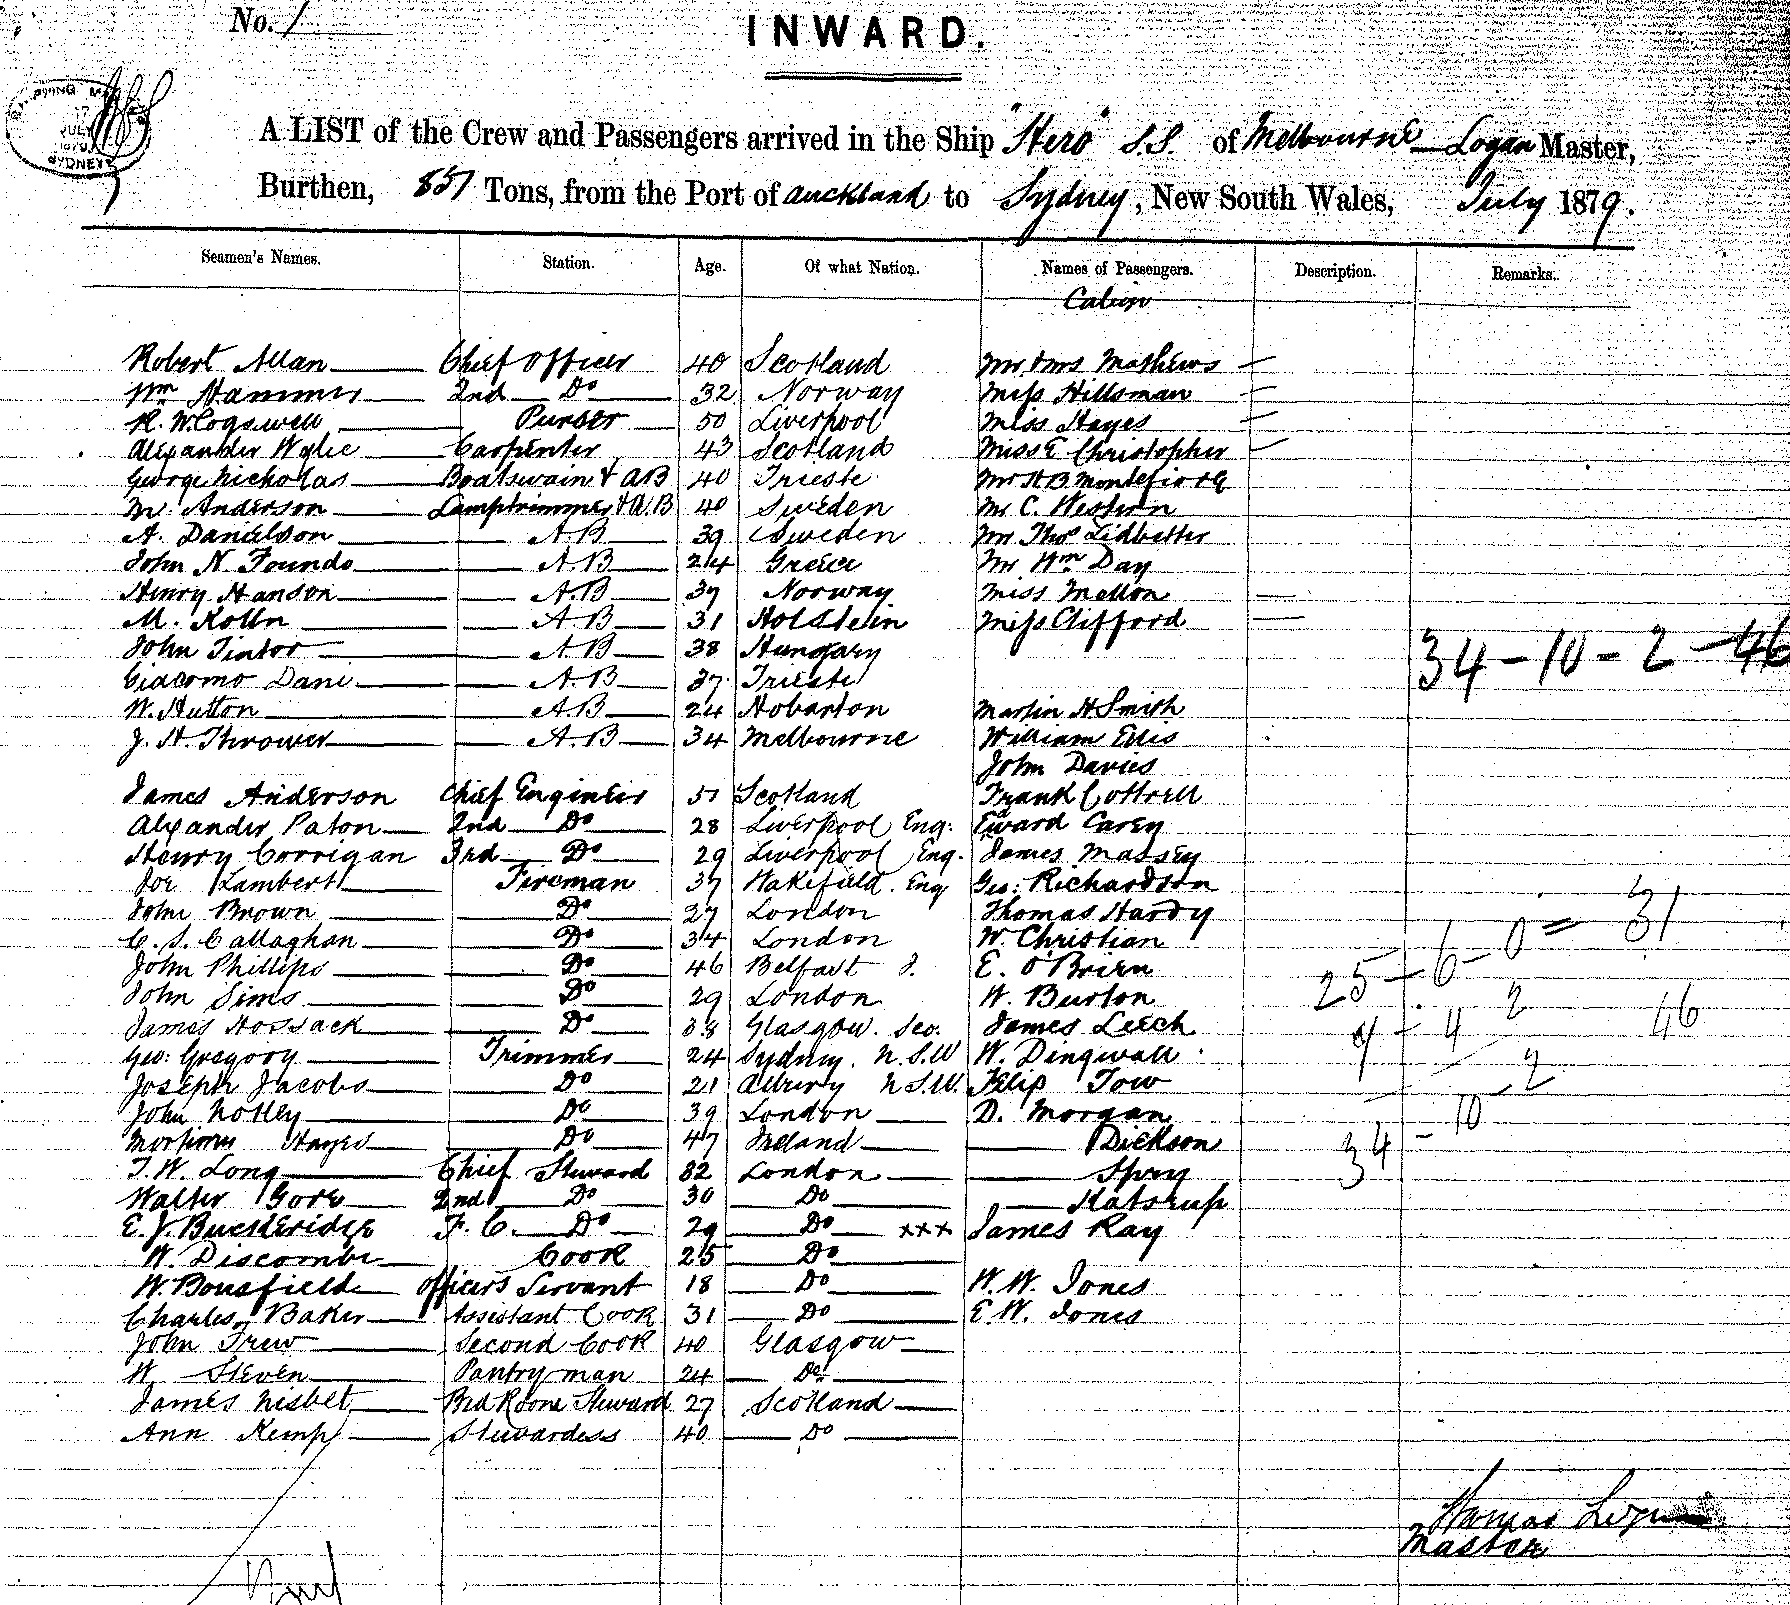 No. 1
INWARD.
SHIPPING MA
JULY
1879
SYDNEY
A LIST of the Crew and Passengers arrived in the Ship "Hero" S.S. of Melbourne Logan Master,
Burthen, Tons, from the Port of Auckland to Sydney, New South Wales, July 1879.
Seamen's Names. Station. Age. Of what Nation. Names of Passengers. Description. Remarks.
Cabin
Robert Allan Chief Officer 40 Scotland Mr & Mrs Mathews
Wm Hammer 2nd Do 32 Norway Miss Hillsman
R. W. Cogswell Purser 50 Liverpool Miss Hayes
Alexander Wylie Carpenter 43 Scotland Miss E Christopher
George Nicholas Boatswain & AB 40 Trieste Mr H B Montefiore
M. Anderson Lamptrimmer & A.B 40 Sweden Mr C. Western
A. Danielson A.B 39 Sweden Mr Thos Lidbetter
John N. Foundo A.B 24 Greece Mr Wm Day
Henry Hanson A.B 37 Norway Miss Mellon
M. Kolln A.B 31 Holstein Miss Clifford
John Tintor A.B 38 Hungary
34 - 10 - 2 - 46
Giacomo Dani A.B 37 Trieste
W. Hutton A.B 24 Hobarton Martin H Smith
J. H. Thrower A.B 34 Melbourne William Ellis
John Davies
James Anderson Chief Engineer 51 Scotland Frank Cottrell
Alexander Paton 2nd Do 28 Liverpool Eng. Edward Carey
Henry Corrigan 3rd Do 29 Liverpool Eng. James Massey
Joe Lambert Fireman 37 Wakefield. Eng Geo: Richardson
John Brown Do 27 London Thomas Hardy
C. S. Callaghan Do 34 London W. Christian 25 - 6 - 0 = 31
John Phillips Do 46 Belfast I. E. O'Brien
John Sims Do 29 London W. Burton
James Hossack Do 38 Glasgow. Sco. James Leech 9 - 4 2 46
Geo: Gregory Trimmer 24 Sydney. N.S.W W. Dingwall
Joseph Jacobs Do 21 Albury N.S.W. Tow 2
John Notley Do 39 London D. Morgan
Hayes Do 47 Ireland Dickson 34 - 10
T. W. Long Chief Steward 32 London Spry
Walter Gore 2nd Do 30 Do
E. J. Buckeridge F. C. Do 29 Do xxx James Ray
W. Discombe Cook 25 Do
W. Bousfield Officers Servant 18 Do W. W. Jones
Charles Baker Assistant Cook 31 Do E. W. Jones
John Trew Second Cook 40 Glasgow
W Steven Pantry man 24 Do
James Nisbet Bed Room Steward 27 Scotland
Ann Kemp Stewardess 40 Do
Thomas Logan
Master